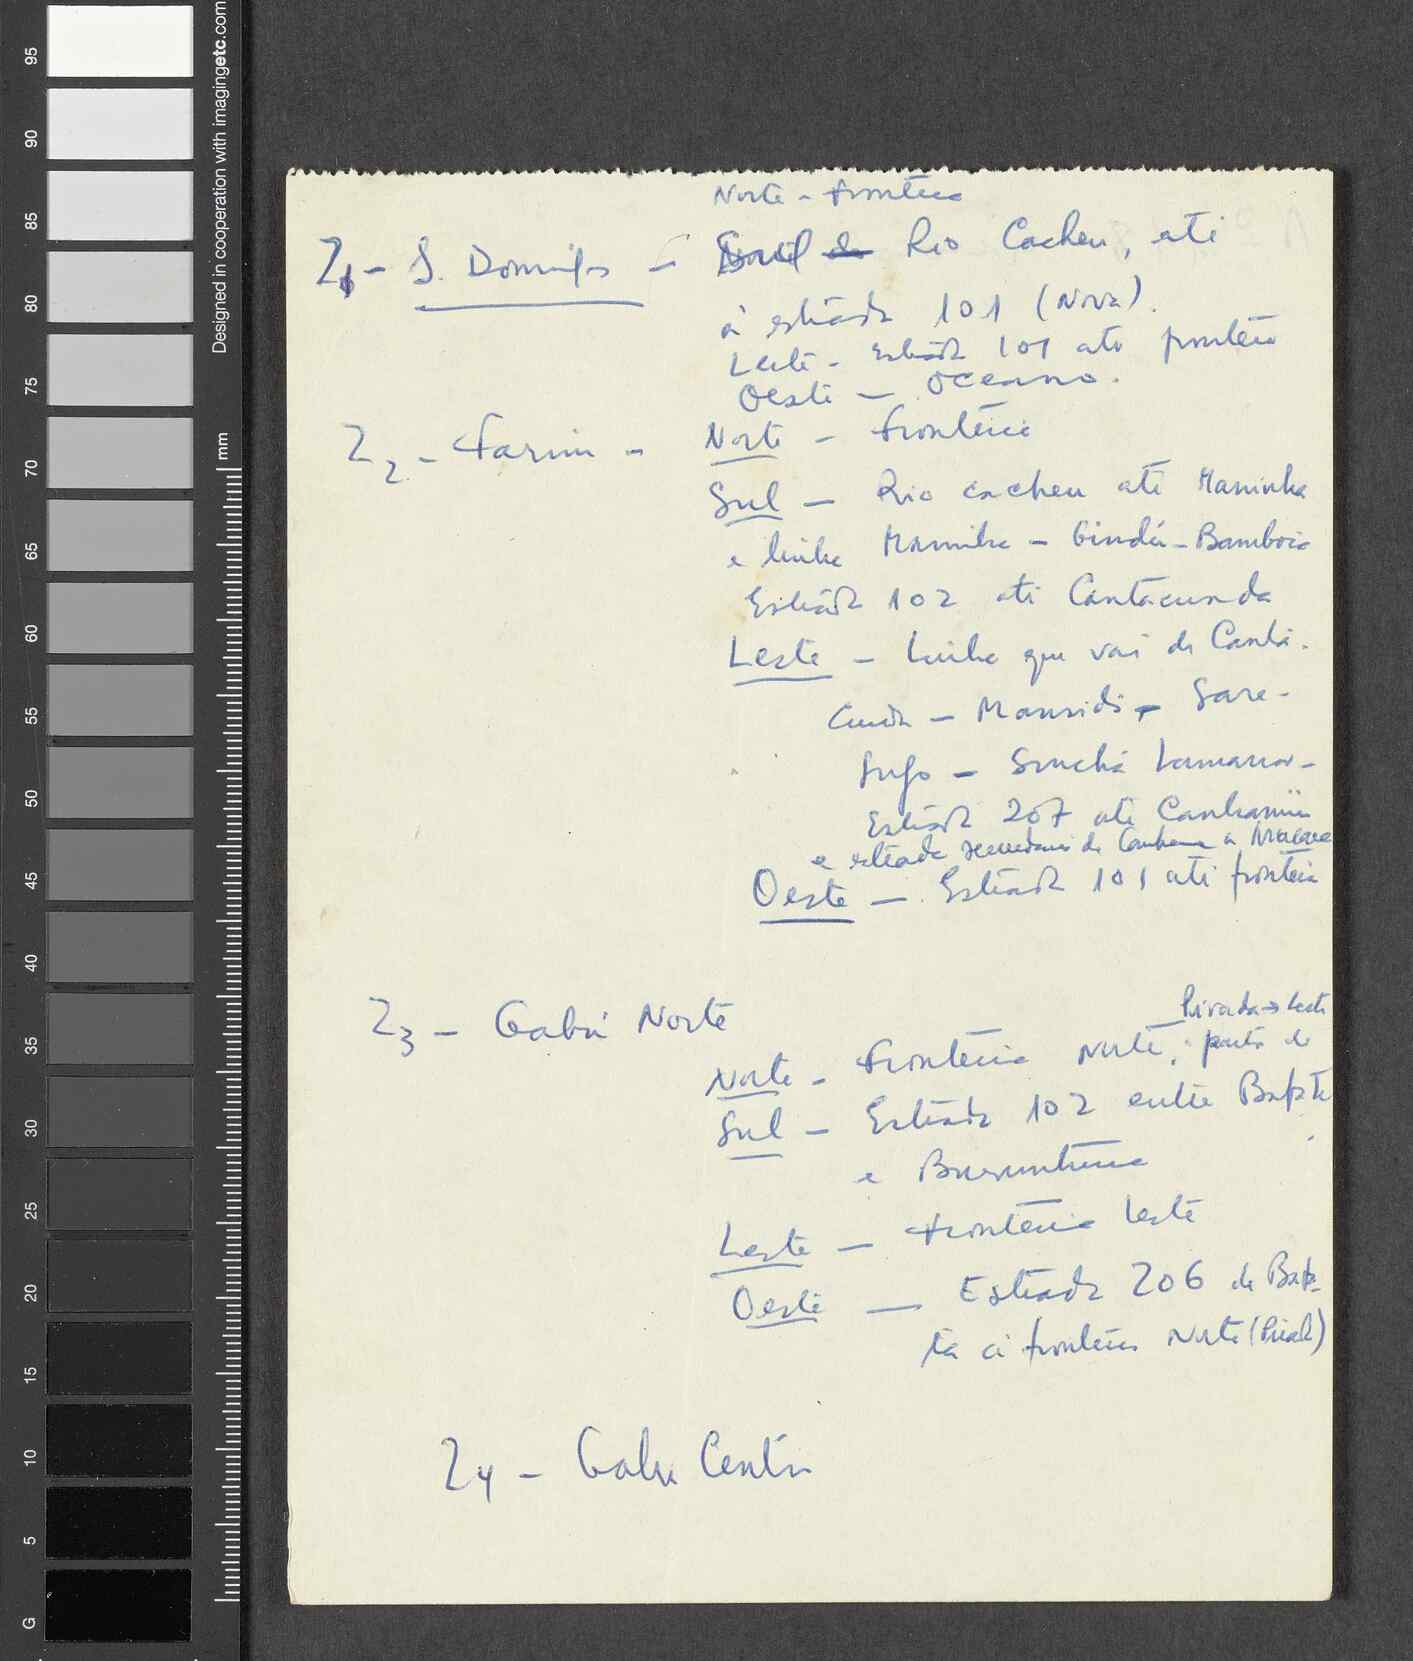 Norte - Fronteira
Z1 - S. Domingos - Sul Rio Cacheu, até
à estrada 101 (Nova).
Leste - Estrada 101 até fronteira
Oeste - Oceano.
Z2 - Farim - Norte - Fronteira
Sul - Rio Cacheu até Maninha
e linha Maninha - Gindú - Bamboia
Estrada 102 até Cantacunda
Leste - Linha que vai de Canta-
cunda - Mansidi - Sare-
- Sincha
Estrada 207 até Canhamina
e estrada secundária de a
Oeste - Estrada 101 até fronteira
Z3 - Gabú Norte
Pirada → Leste
Norte - Fronteira Norte, partir de
Sul - Estrada 102 entre Bafatá
e Buruntuma
Leste - Fronteira Leste
Oeste - Estrada 206 de Bafa-
tá à fronteira Norte (Pirada)
Z4 - Gabu Centro
95
90
85
80
75
70
65
60
55
50
45
40
35
30
25
20
15
10
5
G
mm
Designed in cooperation with imagingetc.com